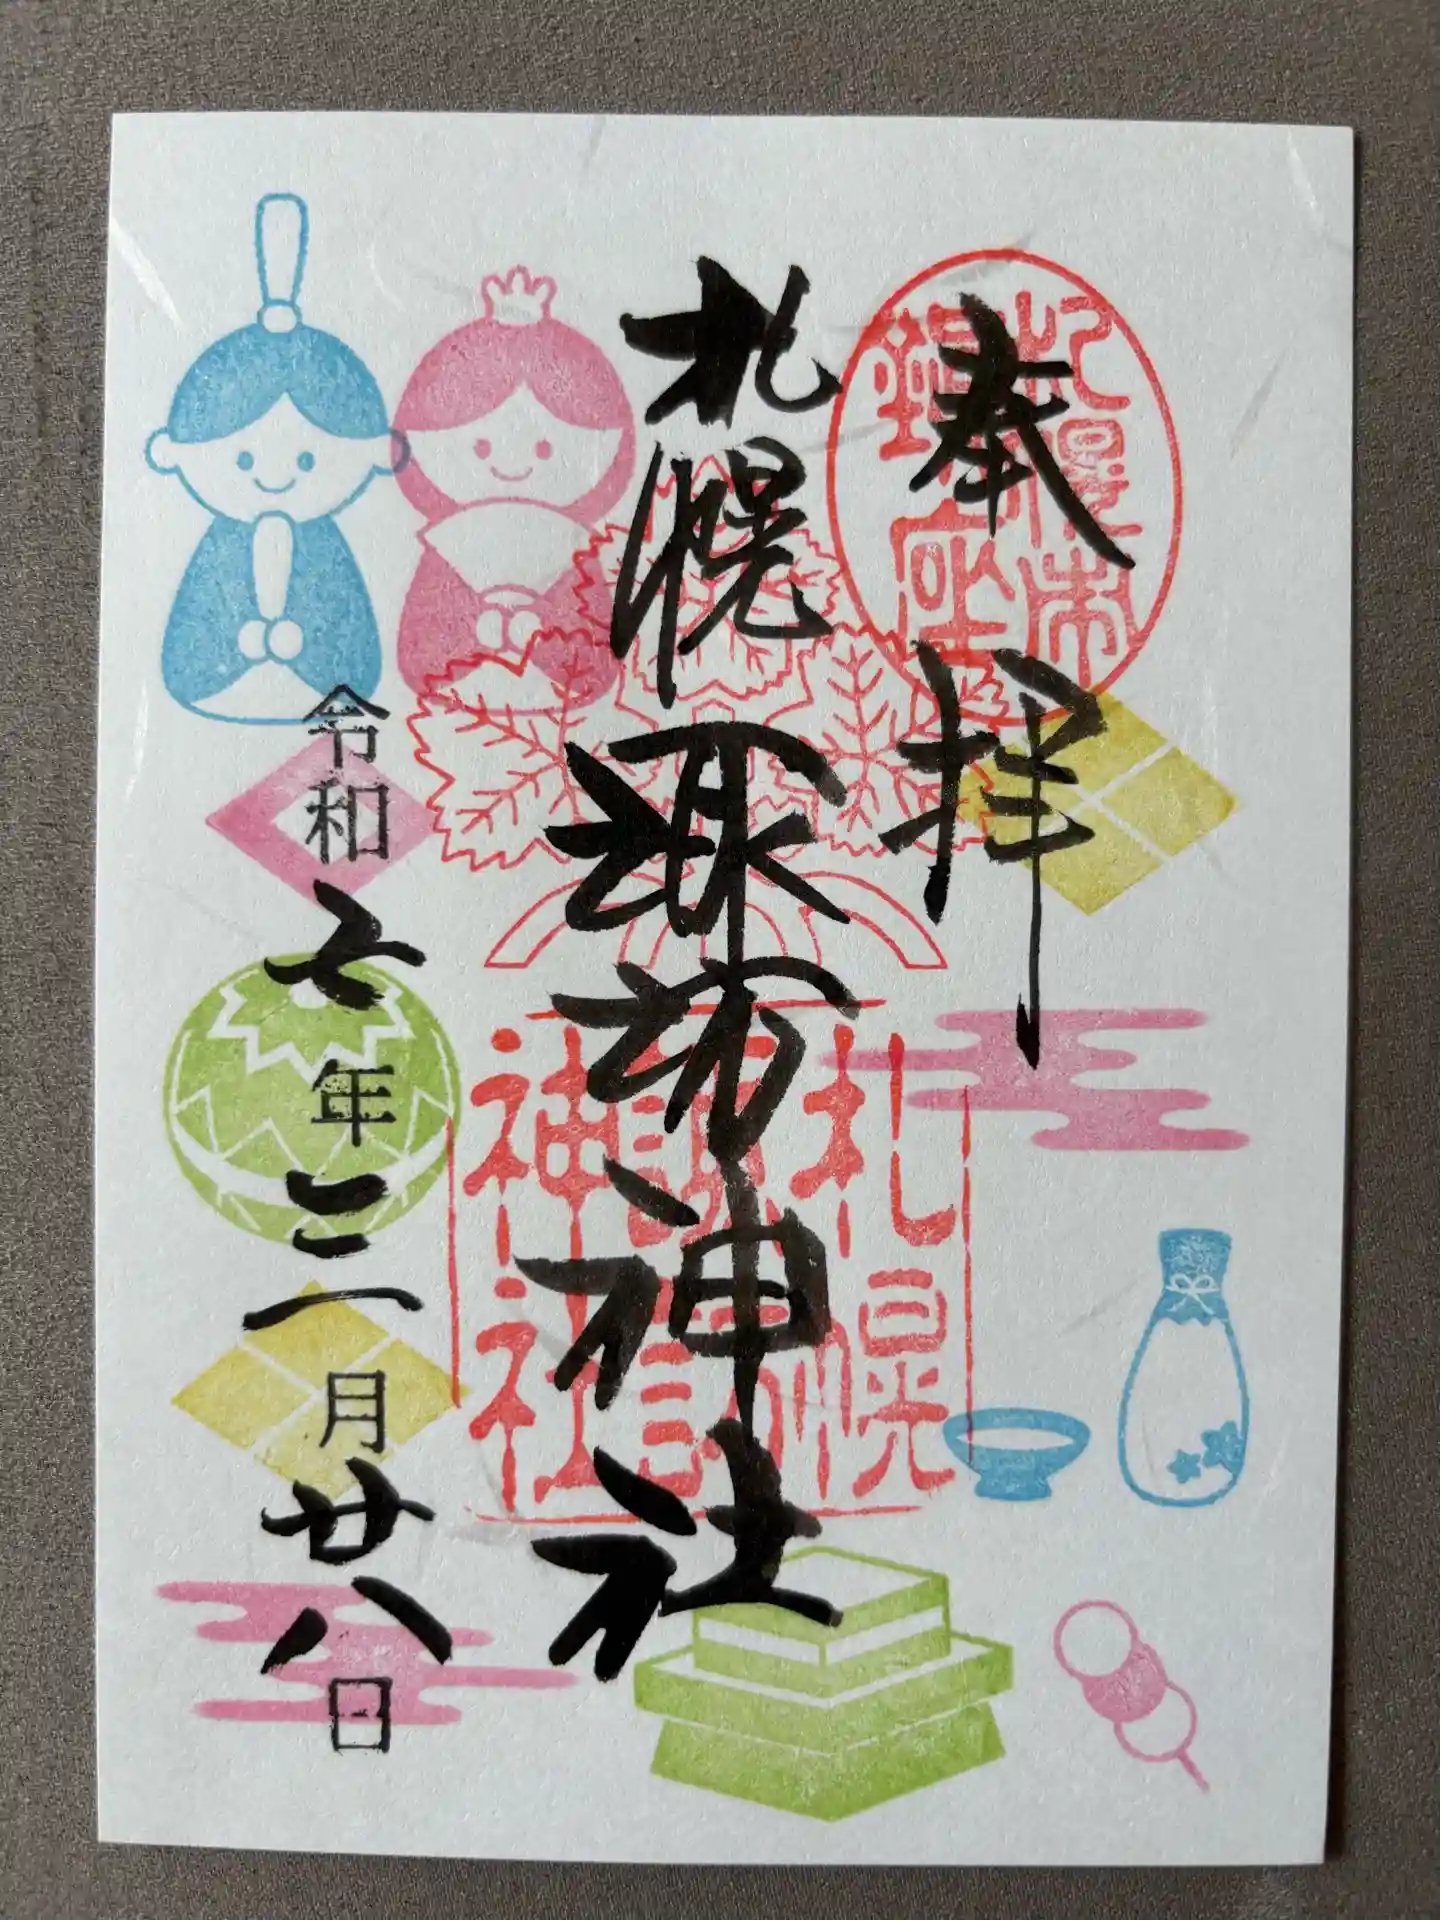 奉拝
札幌市
鎮座
札幌諏訪神社
札幌
諏訪
神社
令和七年三月廿八日